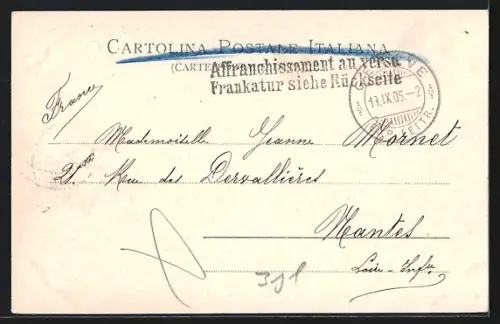 CARTOLINA POSTALE ITALIANA
(CARTE
Affranchissement au verso
Frankatur siehe Rückseite
GENÈVE
13.IX.05.-2
EXP. LETTR.
France
Mademoiselle Jeanne Mornet
21. Rue des Dervallières
Nantes
Loire-Infre
391